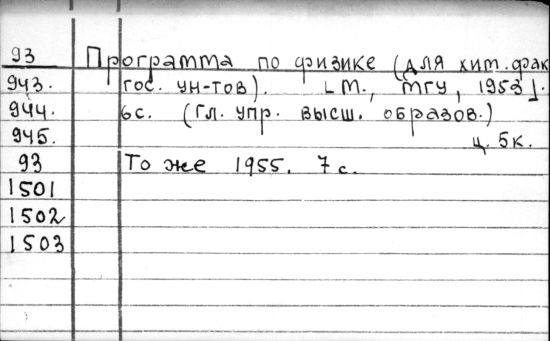 93 Программа по физике (для хим. фак
943. гос. ун-тов). [М., МГУ, 1953].
944. 6с. (Гл. упр. высш. образов.)
945. ц. 5к.
93 То же 1955. 7с.
1501
1502
1503